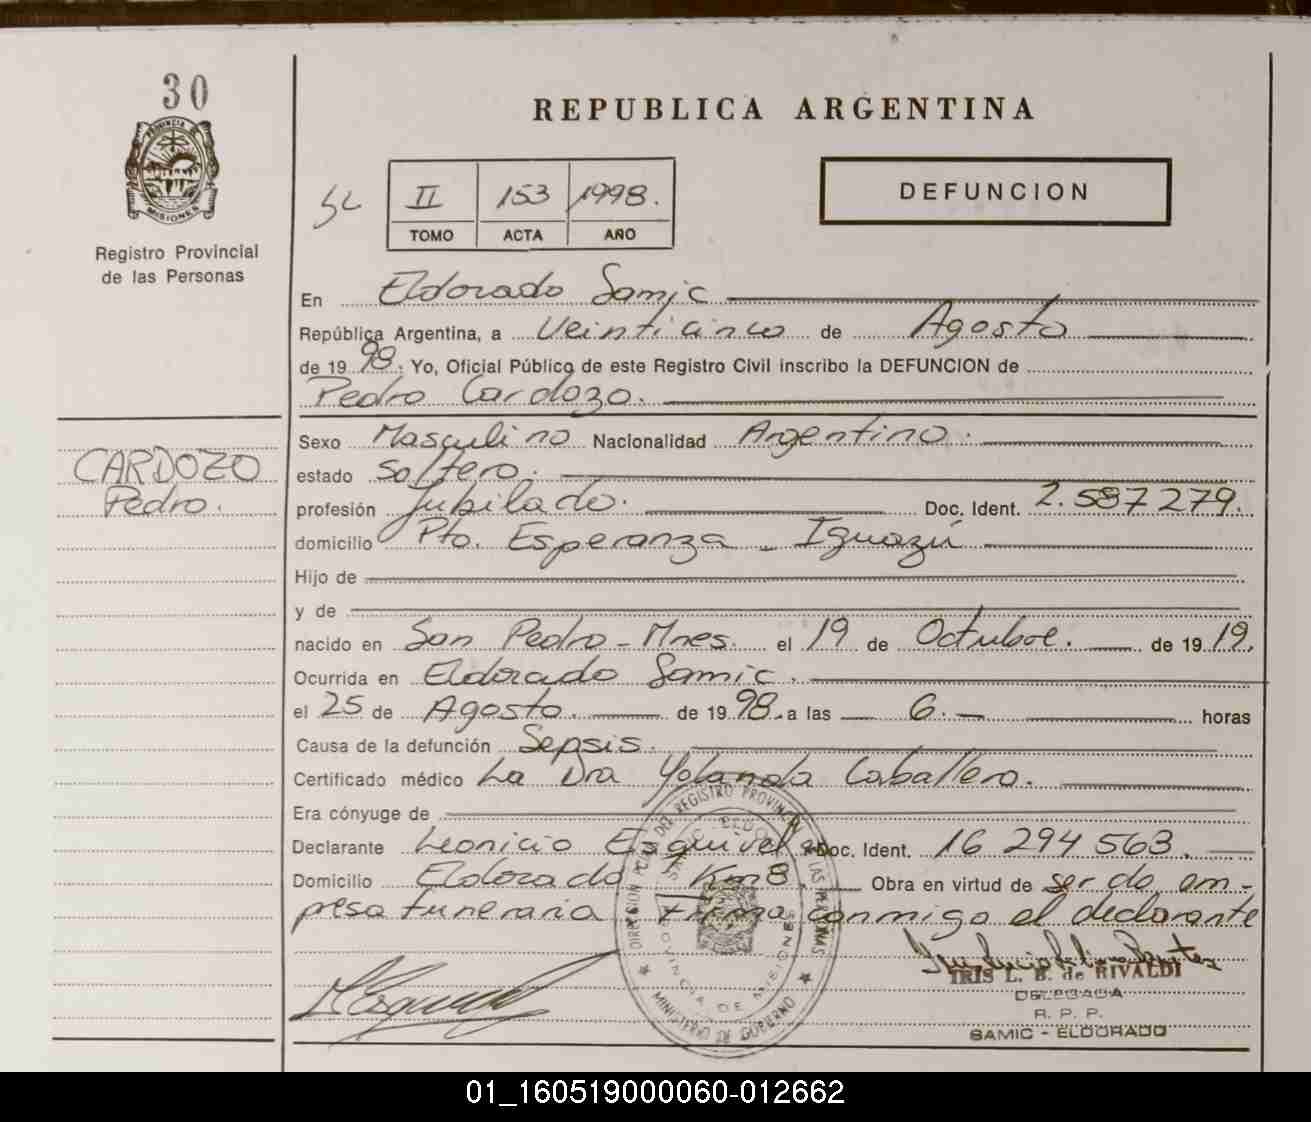 30
PROVINCIA DE
MISIONES
Registro Provincial
de las Personas
REPUBLICA ARGENTINA
II 153 1998.
TOMO ACTA AÑO
DEFUNCION
En Eldorado Samic
República Argentina, a Veinticinco de Agosto
de 19 98. Yo, Oficial Público de este Registro Civil inscribo la DEFUNCION de
Pedro Cardozo.
CARDOZO
Pedro.
Sexo Masculino Nacionalidad Argentino.
estado Soltero.
profesión Jubilado. Doc. Ident. 2.587279.
domicilio Pto. Esperanza - Iguazú
Hijo de
y de
nacido en San Pedro - Mnes. el 19 de Octubre. de 19 19.
Ocurrida en Eldorado Samic.
el 25 de Agosto. de 19 98. a las 6. horas
Causa de la defunción Sepsis.
Certificado médico La Dra Yolanda Caballero.
Era cónyuge de
Declarante Leonicio Esquivel Doc. Ident. 16 294 563.
Domicilio Eldorado Km8. Obra en virtud de ser da em-
presa funeraria Firma conmigo el declarante
DIRECCION DEL REGISTRO PROVINCIAL DE LAS PERSONAS
MINISTERIO DE GOBIERNO
PROVINCIA DE MISIONES
IRIS L. B. de RIVALDI
DELEGADA
R. P. P.
SAMIC - ELDORADO
01_160519000060-012662